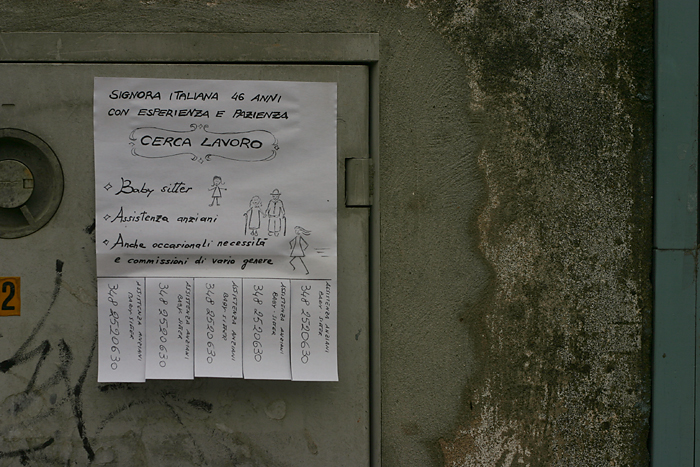 SIGNORA ITALIANA 46 ANNI
CON ESPERIENZA E PAZIENZA
CERCA LAVORO
Baby sitter
Assistenza anziani
Anche occasionali necessità
e commissioni di vario genere
ASSISTENZA ANZIANI
BABY-SITER
348 2520630
ASSISTENZA ANZIANI
BABY-SITER
348 2520630
ASSISTENZA ANZIANI
BABY-SITER
348 2520630
ASSISTENZA ANZIANI
BABY-SITER
348 2520630
ASSISTENZA ANZIANI
BABY-SITER
348 2520630
2